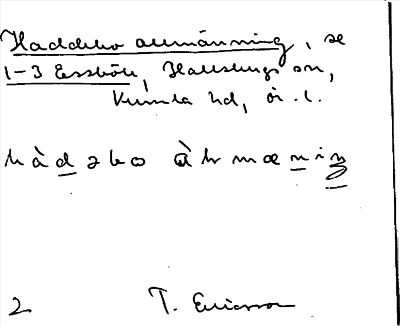 Haddebo allmänning, se
1-3 Essbön, Hallsbergs sn,
Kumla hd, ör. l.
hàdəbo àlmæniŋ
2 T. Ericsson